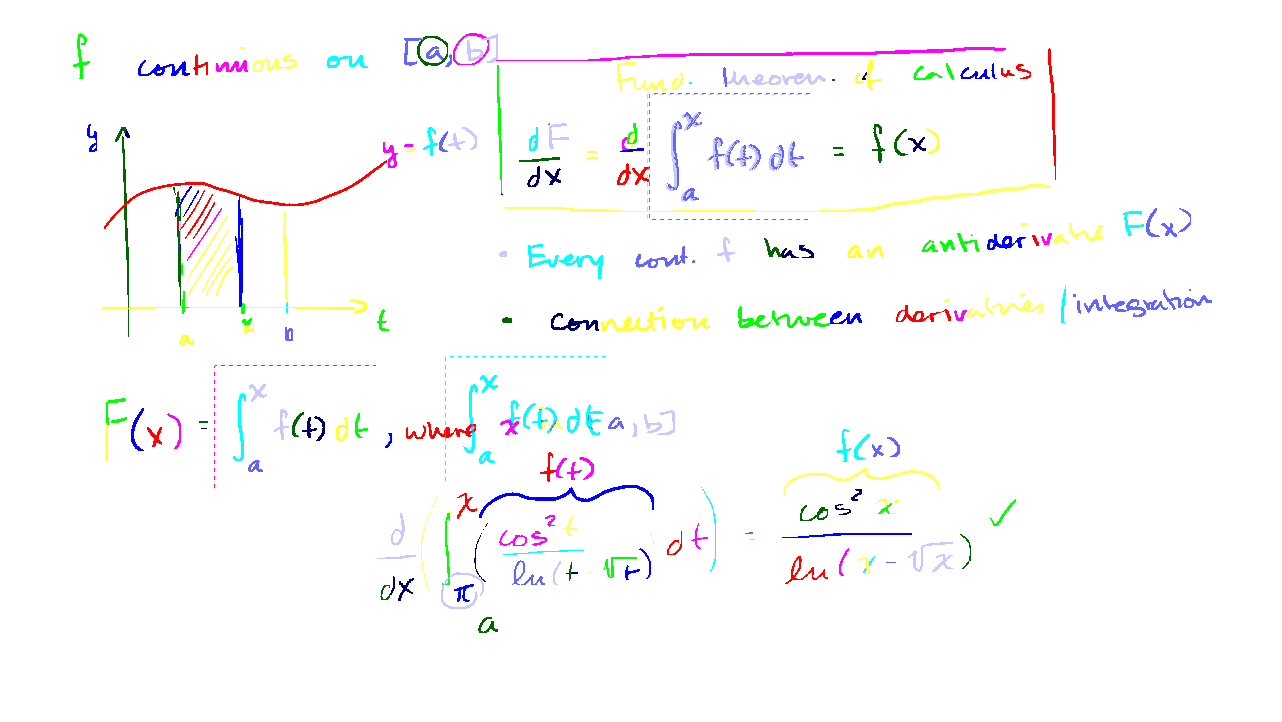 f continuous on [a, b]
Fund. theorem of calculus
dF/dx = d/dx ∫_a^x f(t) dt = f(x)
y
y = f(t)
a x b t
• Every cont. f has an antiderivative F(x)
• connection between derivatives / integration
F(x) = ∫_a^x f(t) dt, where x a, b]
∫_a^x f(t) dt
f(t)
f(x)
d/dx ( ∫_π^x ( cos² t / ln(t - √t) ) dt ) = cos² x / ln(x - √x) ✓
a